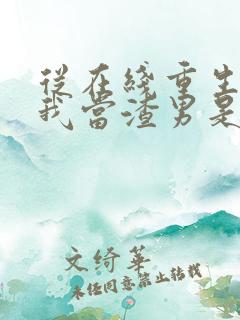 從在綫重生
我當渣男是
文綺華
未经同意禁止转载